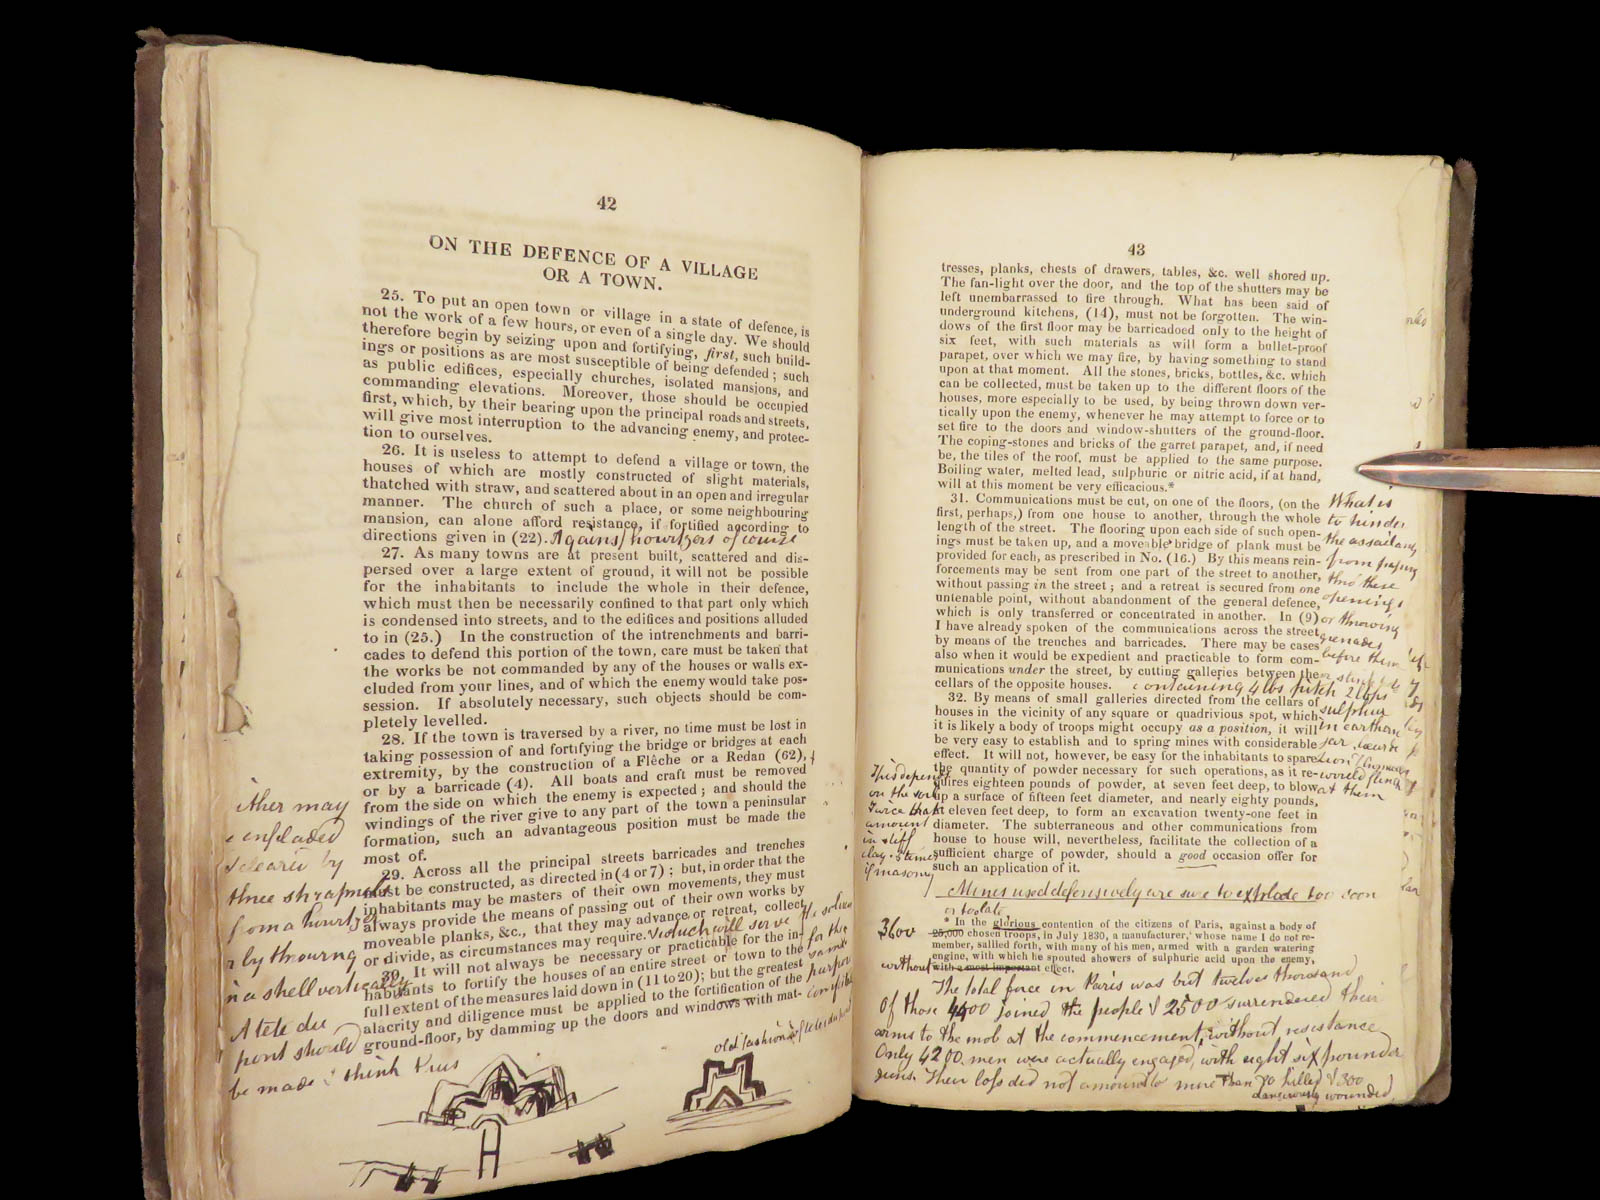 42
ON THE DEFENCE OF A VILLAGE
OR A TOWN.
25. To put an open town or village in a state of defence, is
not the work of a few hours, or even of a single day. We should
therefore begin by seizing upon and fortifying, first, such build-
ings or positions as are most susceptible of being defended; such
as public edifices, especially churches, isolated mansions, and
commanding elevations. Moreover, those should be occupied
first, which, by their bearing upon the principal roads and streets,
will give most interruption to the advancing enemy, and protec-
tion to ourselves.
26. It is useless to attempt to defend a village or town, the
houses of which are mostly constructed of slight materials,
thatched with straw, and scattered about in an open and irregular
manner. The church of such a place, or some neighbouring
mansion, can alone afford resistance, if fortified according to
directions given in (22). Against howitzers of course
27. As many towns are at present built, scattered and dis-
persed over a large extent of ground, it will not be possible
for the inhabitants to include the whole in their defence,
which must then be necessarily confined to that part only which
is condensed into streets, and to the edifices and positions alluded
to in (25.) In the construction of the intrenchments and barri-
cades to defend this portion of the town, care must be taken that
the works be not commanded by any of the houses or walls ex-
cluded from your lines, and of which the enemy would take pos-
session. If absolutely necessary, such objects should be com-
pletely levelled.
28. If the town is traversed by a river, no time must be lost in
taking possession of and fortifying the bridge or bridges at each
extremity, by the construction of a Flêche or a Redan (62),
or by a barricade (4). All boats and craft must be removed
from the side on which the enemy is expected; and should the
windings of the river give to any part of the town a peninsular
formation, such an advantageous position must be made the
most of.
29. Across all the principal streets barricades and trenches
must be constructed, as directed in (4 or 7); but, in order that the
inhabitants may be masters of their own movements, they must
always provide the means of passing out of their own works by
moveable planks, &c., that they may advance or retreat, collect
or divide, as circumstances may require. which will serve
30. It will not always be necessary or practicable for the in-
habitants to fortify the houses of an entire street or town to the
full extent of the measures laid down in (11 to 20); but the greatest
alacrity and diligence must be applied to the fortification of the
ground-floor, by damming up the doors and windows with mat-
for the
same
ither may
enfiladed
cleared by
three shrapnels
from a howitzer
r by throwing
in a shell vertically
A tete du
pont should
be made I think thus
old fashioned
43
tresses, planks, chests of drawers, tables, &c. well shored up.
The fan-light over the door, and the top of the shutters may be
left unembarrassed to fire through. What has been said of
underground kitchens, (14), must not be forgotten. The win-
dows of the first floor may be barricadoed only to the height of
six feet, with such materials as will form a bullet-proof
parapet, over which we may fire, by having something to stand
upon at that moment. All the stones, bricks, bottles, &c. which
can be collected, must be taken up to the different floors of the
houses, more especially to be used, by being thrown down ver-
tically upon the enemy, whenever he may attempt to force or to
set fire to the doors and window-shutters of the ground-floor.
The coping-stones and bricks of the garret parapet, and, if need
be, the tiles of the roof, must be applied to the same purpose.
Boiling water, melted lead, sulphuric or nitric acid, if at hand,
will at this moment be very efficacious.*
31. Communications must be cut, on one of the floors, (on the
first, perhaps,) from one house to another, through the whole
length of the street. The flooring upon each side of such open-
ings must be taken up, and a moveable bridge of plank must be
provided for each, as prescribed in No. (16.) By this means rein-
forcements may be sent from one part of the street to another,
without passing in the street; and a retreat is secured from one
untenable point, without abandonment of the general defence,
which is only transferred or concentrated in another. In (9)
I have already spoken of the communications across the street
by means of the trenches and barricades. There may be cases
also when it would be expedient and practicable to form com-
munications under the street, by cutting galleries between the
cellars of the opposite houses.
What is
to hinder
the assailants
from passing
thro' these
openings
or throwing
grenades
before them
containing 4 lbs pitch 2 lbs
sulphur
in earthen
jar
would fling
at them
32. By means of small galleries directed from the cellars of
houses in the vicinity of any square or quadrivious spot, which
it is likely a body of troops might occupy as a position, it will
be very easy to establish and to spring mines with considerable
effect. It will not, however, be easy for the inhabitants to spare
the quantity of powder necessary for such operations, as it re-
quires eighteen pounds of powder, at seven feet deep, to blow
up a surface of fifteen feet diameter, and nearly eighty pounds,
at eleven feet deep, to form an excavation twenty-one feet in
diameter. The subterraneous and other communications from
house to house will, nevertheless, facilitate the collection of a
sufficient charge of powder, should a good occasion offer for
such an application of it.
This depends
on the soil
Twice that
amount
in stiff
clay. 3 times
if masonry
Mines used defensively are sure to explode too soon
or too late
* In the glorious contention of the citizens of Paris, against a body of
3600
25,000 chosen troops, in July 1830, a manufacturer, whose name I do not re-
member, sallied forth, with many of his men, armed with a garden watering
engine, with which he spouted showers of sulphuric acid upon the enemy,
without
with a most important effect.
The total force in Paris was but twelve thousand
Of those 4400 joined the people & 2500 surrendered their
arms to the mob at the commencement, without resistance
Only 4200 men were actually engaged, with eight six pounder
guns. Their loss did not amount to more than 70 killed & 300
dangerously wounded